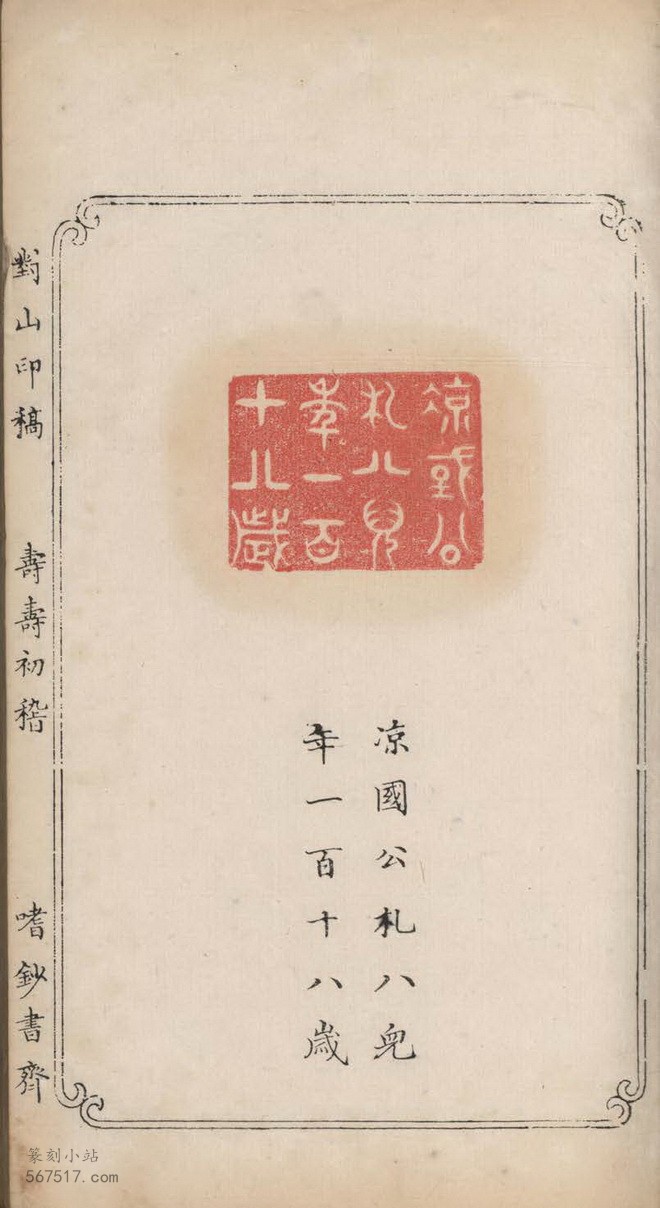 凉國公
札八兒
年一百
十八歲
凉國公札八兒
年一百十八歲
對山印稿 壽壽初稽 嗜鈔書齋
篆刻小站
567517.com